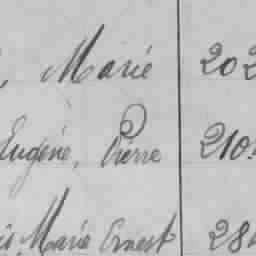 , Marie 202
Eugène, Pierre 210
Marie Ernest 28